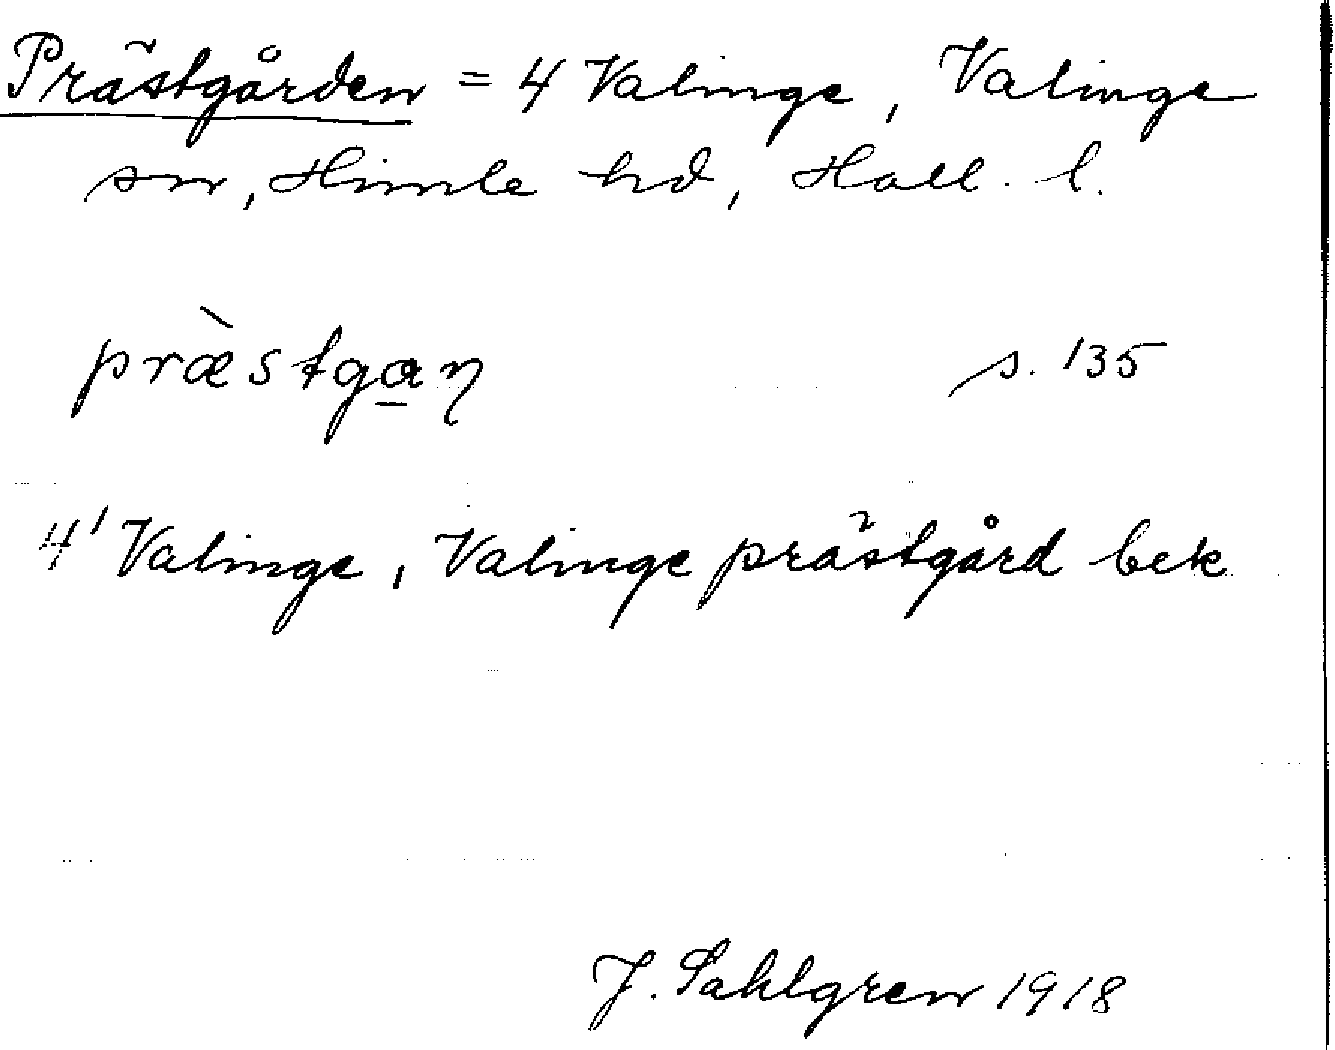 Prästgården = 4 Valinge, Valinge
sn, Himle hd, Hall. l.
præ̀stga̲ꞃ s. 135
4¹ Valinge, Valinge prästgård bek
J. Sahlgren 1918